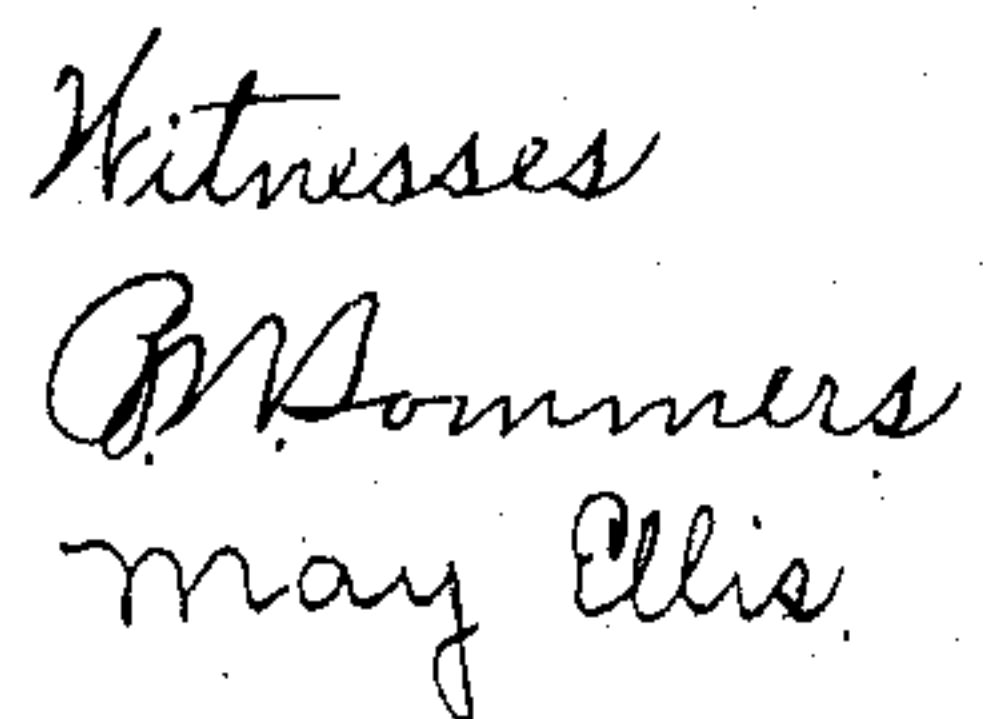 Witnesses
B. M. Sommers
May Ellis.